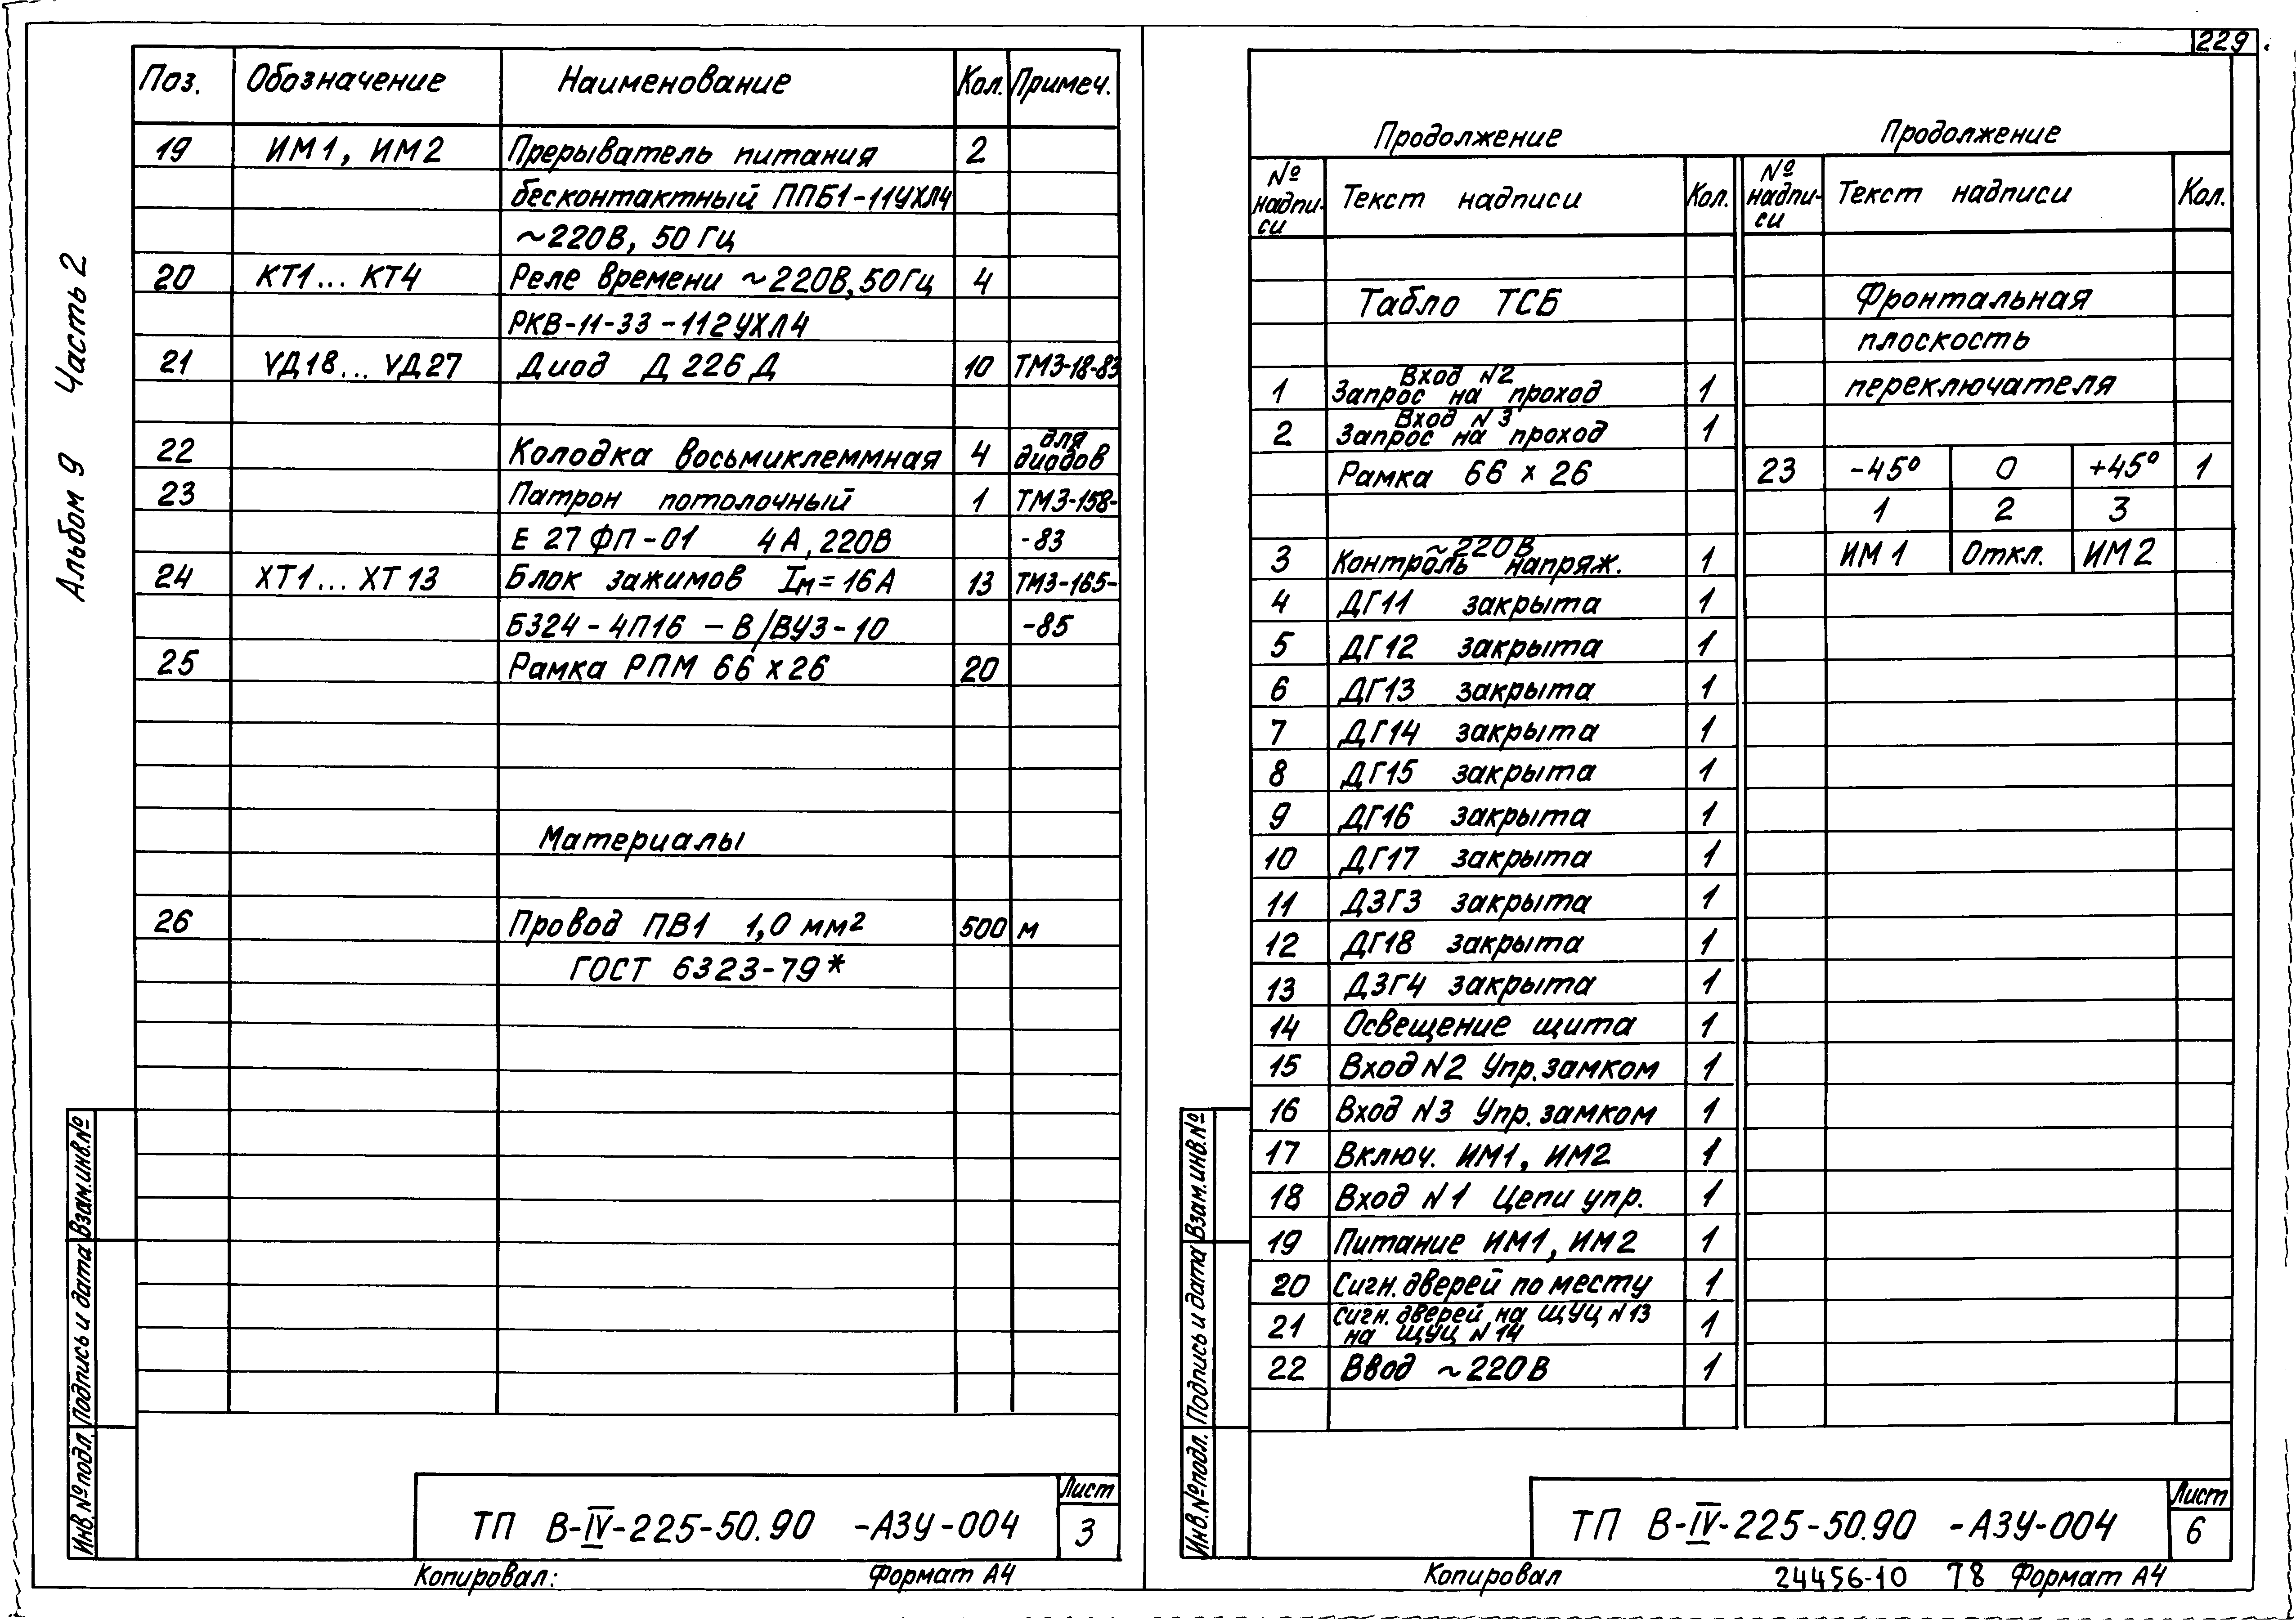 229
Альбом 9 Часть 2
Поз. Обозначение Наименование Кол. Примеч.
19 ИМ1, ИМ2 Прерыватель питания 2
бесконтактный ППБ1-11УХЛ4
~220В, 50 Гц
20 КТ1... КТ4 Реле времени ~220В, 50Гц 4
РКВ-11-33-112УХЛ4
21 VД18... VД27 Диод Д226Д 10 ТМ3-18-83
22 Колодка восьмиклеммная 4 для диодов
23 Патрон потолочный 1 ТМ3-158-
Е 27 ФП-01 4А, 220В -83
24 ХТ1... ХТ13 Блок зажимов Iм=16А 13 ТМ3-165-
Б324-4П16-В/ВУ3-10 -85
25 Рамка РПМ 66х26 20
Материалы
26 Провод ПВ1 1,0 мм² 500 м
ГОСТ 6323-79*
Инв.№подл. Подпись и дата Взам.инв.№
ТП В-IV-225-50.90 -АЗУ-004
Лист
3
Копировал: Формат А4
Продолжение
№ надпи-си Текст надписи Кол.
Табло ТСБ
1 Вход N2
Запрос на проход 1
2 Вход N3
Запрос на проход 1
Рамка 66 х 26
3 ~220В
Контроль напряж. 1
4 ДГ11 закрыта 1
5 ДГ12 закрыта 1
6 ДГ13 закрыта 1
7 ДГ14 закрыта 1
8 ДГ15 закрыта 1
9 ДГ16 закрыта 1
10 ДГ17 закрыта 1
11 ДЗГ3 закрыта 1
12 ДГ18 закрыта 1
13 ДЗГ4 закрыта 1
14 Освещение щита 1
15 Вход N2 Упр.замком 1
16 Вход N3 Упр.замком 1
17 Включ. ИМ1, ИМ2 1
18 Вход N1 Цепи упр. 1
19 Питание ИМ1, ИМ2 1
20 Сигн.дверей по месту 1
21 Сигн.дверей на ЩУЦ N13
на ЩУЦ N14 1
22 Ввод ~220В 1
Продолжение
№ надпи-си Текст надписи Кол.
Фронтальная
плоскость
переключателя
23 -45° 0 +45° 1
1 2 3
ИМ1 Откл. ИМ2
Инв.№подл. Подпись и дата Взам.инв.№
ТП В-IV-225-50.90 -АЗУ-004
Лист
6
Копировал 24456-10 78 Формат А4